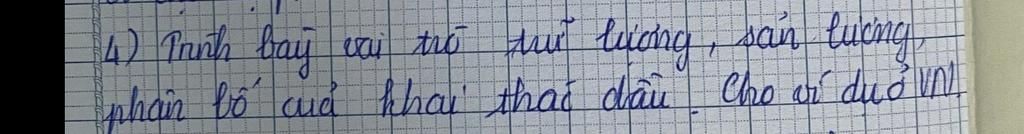 4) Trình bày vai trò trữ lượng, sản lượng,
phân bố của khai thác dầu. Cho ví dụ ở VN